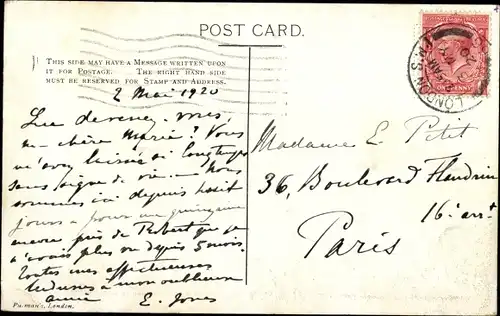 POST CARD.
THIS SIDE MAY HAVE A MESSAGE WRITTEN UPON
IT FOR POSTAGE. THE RIGHT HAND SIDE
MUST BE RESERVED FOR STAMP AND ADDRESS.
2 Mai 1920
Que devenez-vous,
ma chère Marie? Vous
m'avez laissée si longtemps
sans signe de vie. Nous
sommes ici depuis huit
jours & pour une quinzaine
encore près de Robert que je
n'avais plus vu depuis 5 mois.
Toutes mes affectueuses
tendresses à mon oublieuse
amie E. Jones
Madame E. Petit
36, Boulevard Flandrin
16e arrt
Paris
LONDON
ONE PENNY
London.